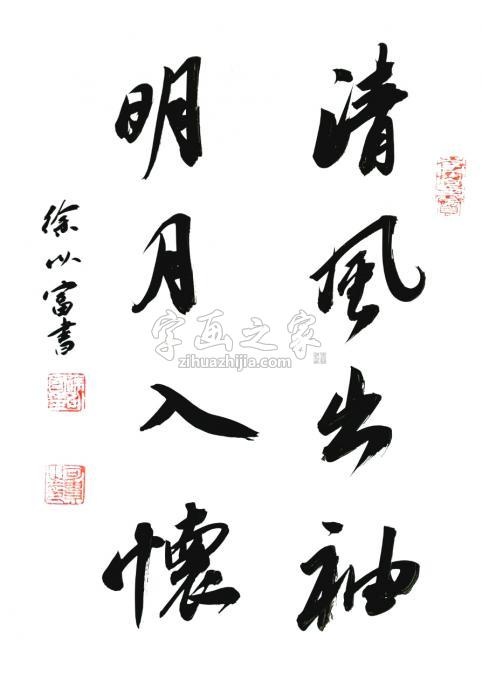 清風出袖
明月入懷
徐以富書
字画之家
zihuazhijia.com